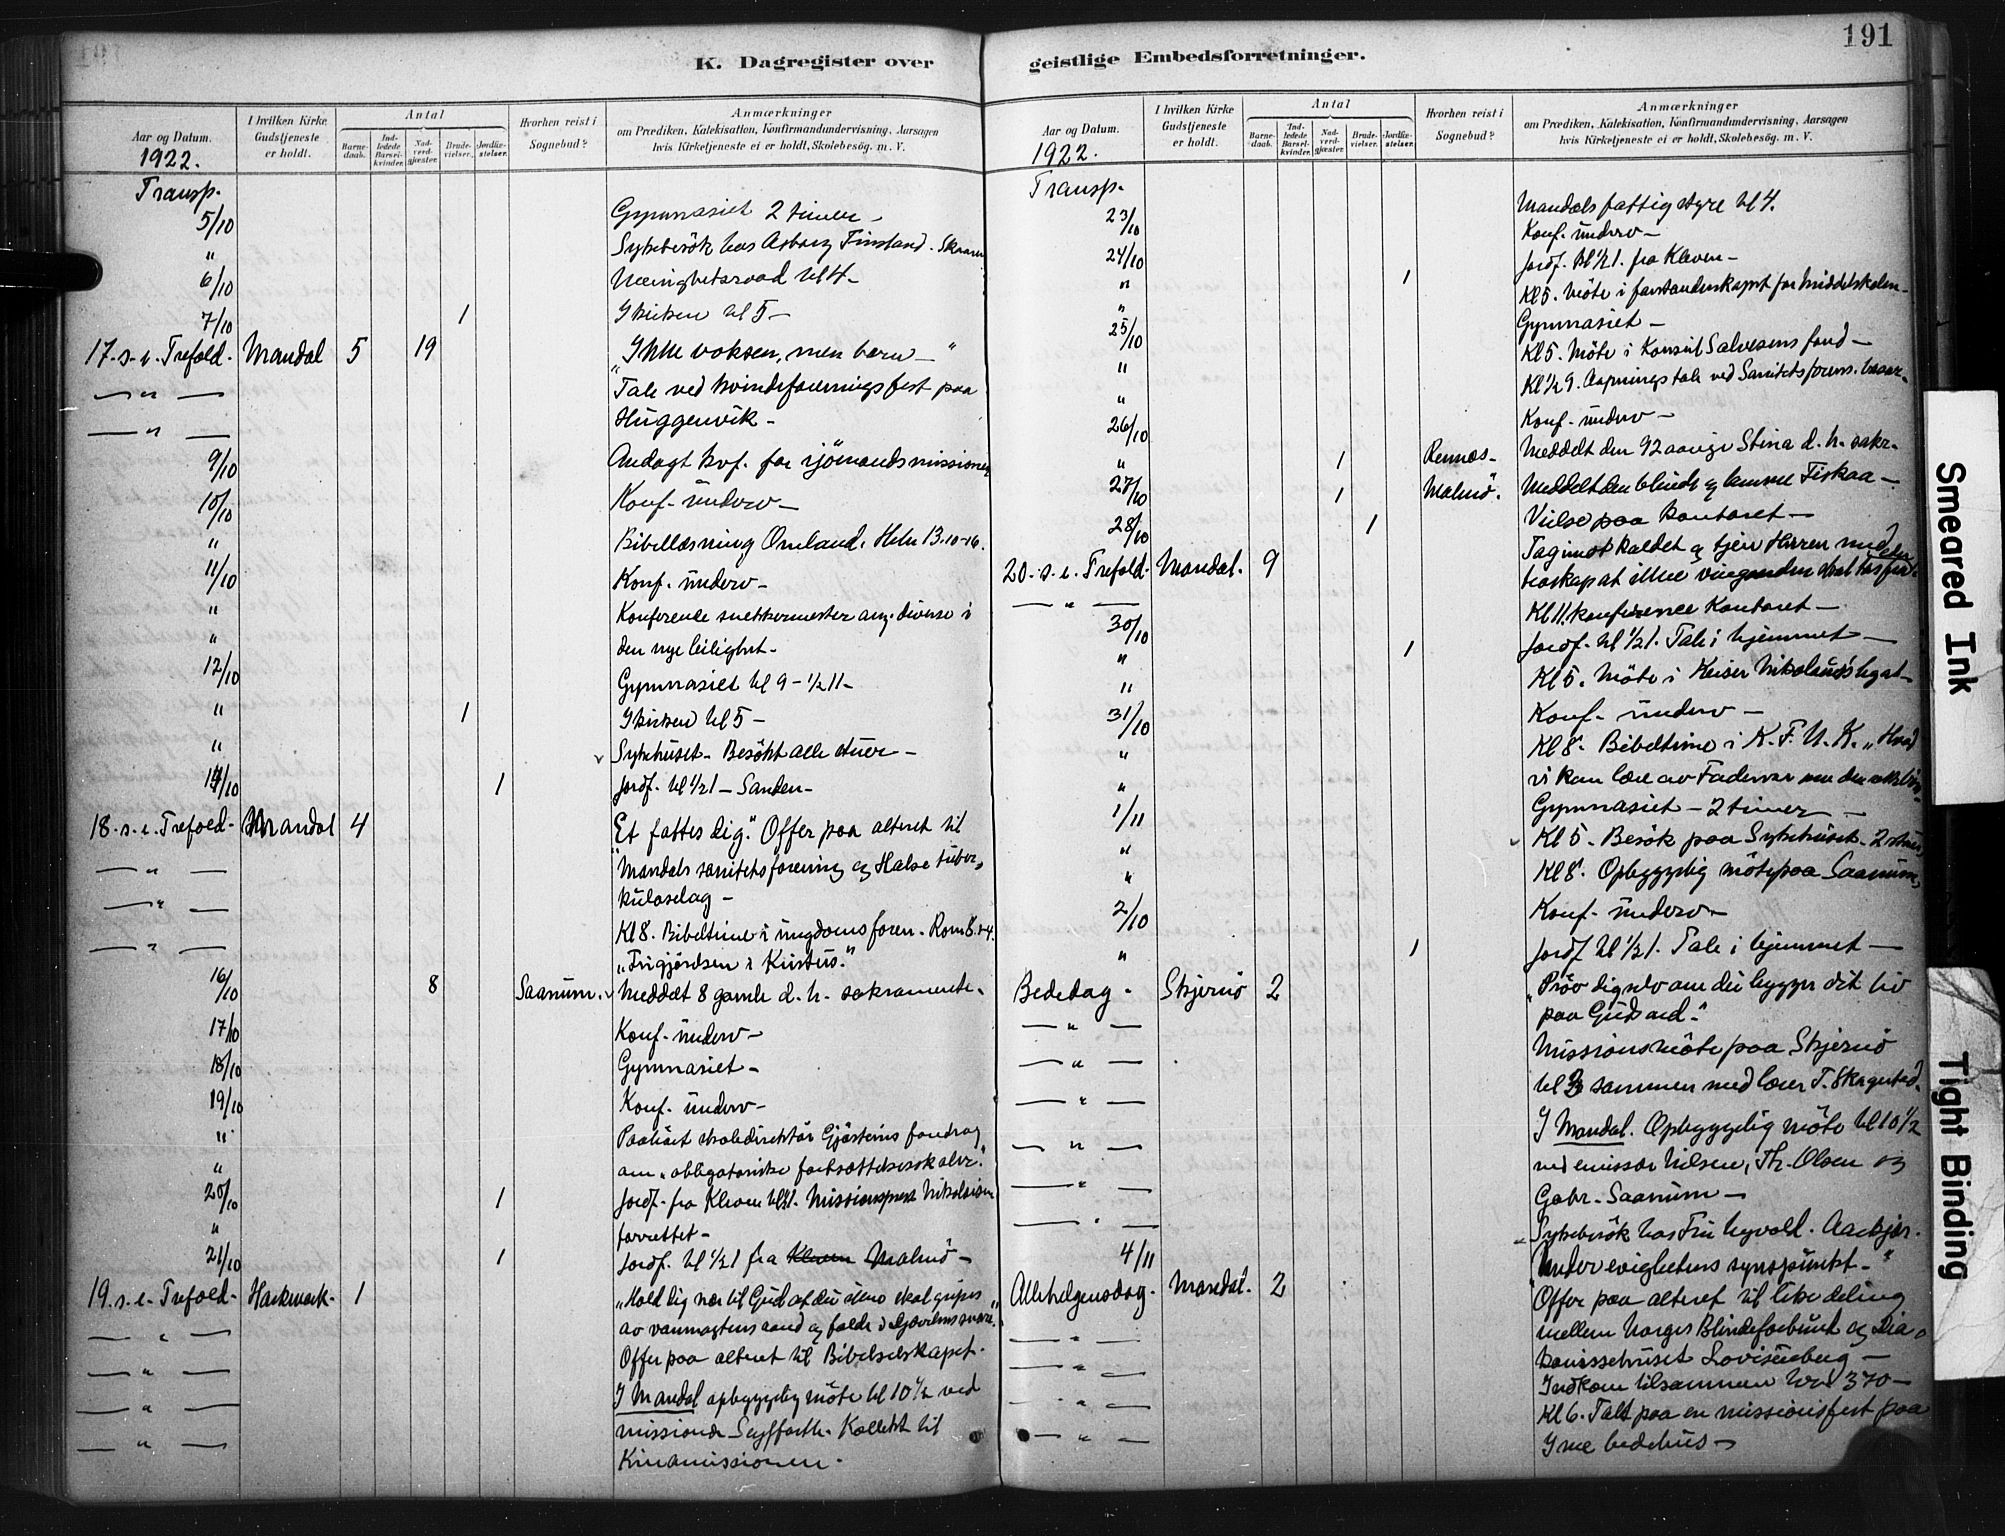 191
K. Dagregister over geistlige Embedsforretninger.
Aar og Datum. 1922.
I hvilken Kirke Gudstjeneste er holdt.
Antal
Barne-daab.
Ind-ledede Barsel-kvinder.
Nad-verd-gjæster.
Brude-vielser.
Jordfæ-stelser.
Hvorhen reist i Sognebud?
Anmærkninger
om Prædiken, Katekisation, Konfirmandundervisning, Aarsagen
hvis Kirketjeneste ei er holdt, Skolebesøg. m. V.
Transp.
5/10 Gymnasiet 2 timer -
" Sykebesök hos Asborg Finsland. Skaam
6/10 Menighetsraad kl 4 -
7/10 1 I kirken kl 5 -
17. s. e. Trefold. Mandal 5 19 "Ikke voksen, men barn -"
— " — Tale ved kvindeforeningsfest paa
— " — Huggenvik -
9/10 Andagt kvf. for sjömandsmissionen
10/10 Konf. underv -
" Bibellæsning Omland. Hebr 13.10-16.
11/10 Konf. underv -
" Konferende snekkermester ang. diverse i
" den nye leilighet -
12/10 Gymnasiet kl 9 - 1/2 11 -
" 1 I kirken kl 5 -
" Sykehuset - Besökt alle stuer -
14/10 1 Jordf. kl 1/2 1 - Sanden -
18. s. e. Trefold. Mandal 4 "Et fattes dig." Offer paa alteret til
— " — Mandals sanitetsforening og Halse tuber-
— " — kuloselag -
— " — Kl 8. Bibeltime i ungdomsforen. Rom 8.1-4.
"Frigjördsen i Kristus."
16/10 8 Saanum. Meddelt 8 gamle d. h. sakramente.
17/10 Konf. underv -
18/10 Gymnasiet -
19/10 Konf. underv -
" Paahört skoledirektör Gjösteins foredrag
" om "obligatoriske fortsættelsesskoler."
20/10 1 Jordf. fra Kleven kl 1/2 1. Missionsprest Nikolaisen
" forrettet -
21/10 1 Jordf. kl 1/2 1 fra Kleven Malmö -
19. s. e. Trefold. Harkmark. 1 "Hold dig nær til Gud at du ikke skal gripes
— " — av vanmagtens aand og falde i djævelens snare."
— " — Offer paa alteret til Bibelselskapet.
— " — I Mandal opbyggelig möte kl 10 1/2 ved
— " — missionær Seyffarth. Kollekt til
Kinamissionen.
Aar og Datum. 1922.
I hvilken Kirke Gudstjeneste er holdt.
Antal
Barne-daab.
Ind-ledede Barsel-kvinder.
Nad-verd-gjæster.
Brude-vielser.
Jordfæ-stelser.
Hvorhen reist i Sognebud?
Anmærkninger
om Prædiken, Katekisation, Konfirmandundervisning, Aarsagen
hvis Kirketjeneste ei er holdt, Skolebesög. m. V.
Transp.
23/10 Mandals fattigstyre kl 4.
Konf. underv -
24/10 1 Jordf. kl 1/2 1. fra Kleven -
" Kl 5. Möte i forstanderskapet for Middelskolen -
" Gymnasiet -
25/10 Kl 5. Möte i Konsul Salvesens fond -
" Kl 1/2 9. Aapningstale ved Sanitetsforens. basar.
" Konf. underv -
26/10 1 Rennes. Meddelt den 92 aarige Stina d. h. sakr.
" 1 Malmö. Meddelt den blinde og lamme Fiskaa -
27/10
28/10 1 Vielse paa kontoret -
20. s. e. Trefold. Mandal. 9 Tag imot kaldet og tjen Herren med
— " — Kl 11. konference Kontoret -
30/10 1 Jordf. kl 1/2 1. Tale i hjemmet -
" Kl 5. Möte i Keiser Nikolaus's legat -
" Konf. underv -
31/10 Kl 8. Bibeltime i K. F. U. K. "Hvad
" vi kan lære av Fadervor
" Gymnasiet - 2 timer -
1/11 Kl 5. Besök paa Sykehuset. 2 stuer
" Kl 8. Opbyggelig möte paa Saanum,
" Konf. underv -
2/10
" 1 Jordf kl 1/2 1. Tale i hjemmet -
Bededag. Skjernö 2 "Pröv dig selv om du bygger dit liv
— " — paa Guds ord."
— " — Missionsmöte paa Skjernö
kl 3 sammen med lærer T. Skagestad.
— " — I Mandal. Opbyggelig möte kl 10 1/2
— " — ved emissær Nilsen, Th. Olsen og
— " — Gabr. Saanum -
— " — Sykebesök hos Fru
4/11 "Under evighetens synspunkt -"
Allehelgensdag. Mandal. 2 Offer paa alteret til like deling
— " — mellem Norges Blindeforbund og Dia-
— " — konissehuset Lovisenberg -
— " — Indkom tilsammen kr 370 -
— " — Kl 6. Talt paa en missionsfest paa
Ime bedehus -
Smeared Ink
Tight Binding